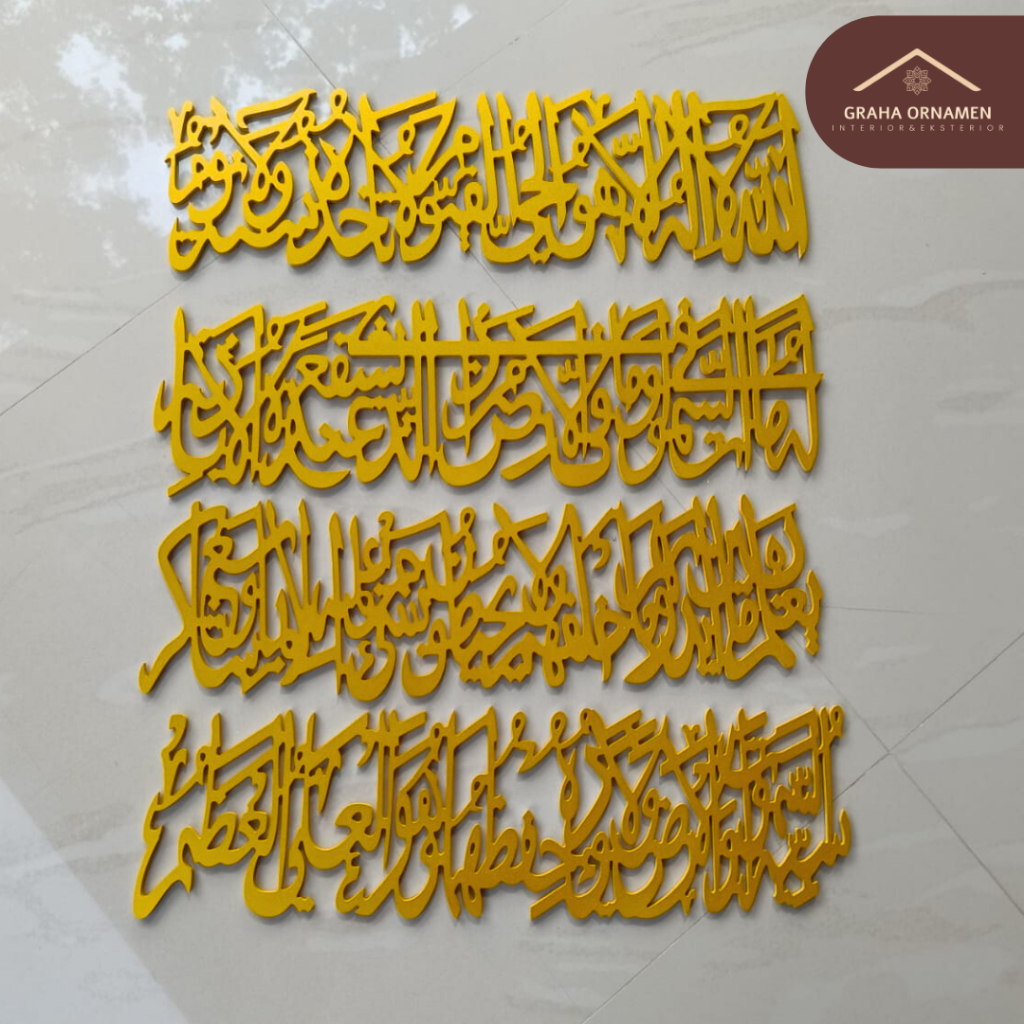 GRAHA ORNAMEN
INTERIOR&EKSTERIOR
الله لا إله إلا هو الحي القيوم لا تأخذه سنة ولا نوم
له ما في السموات وما في الأرض من ذا الذي يشفع عنده إلا بإذنه
يعلم ما بين أيديهم وما خلفهم ولا يحيطون بشيء من علمه إلا بما شاء وسع كر
سيه السموات والأرض ولا يؤده حفظهما وهو العلي العظيم